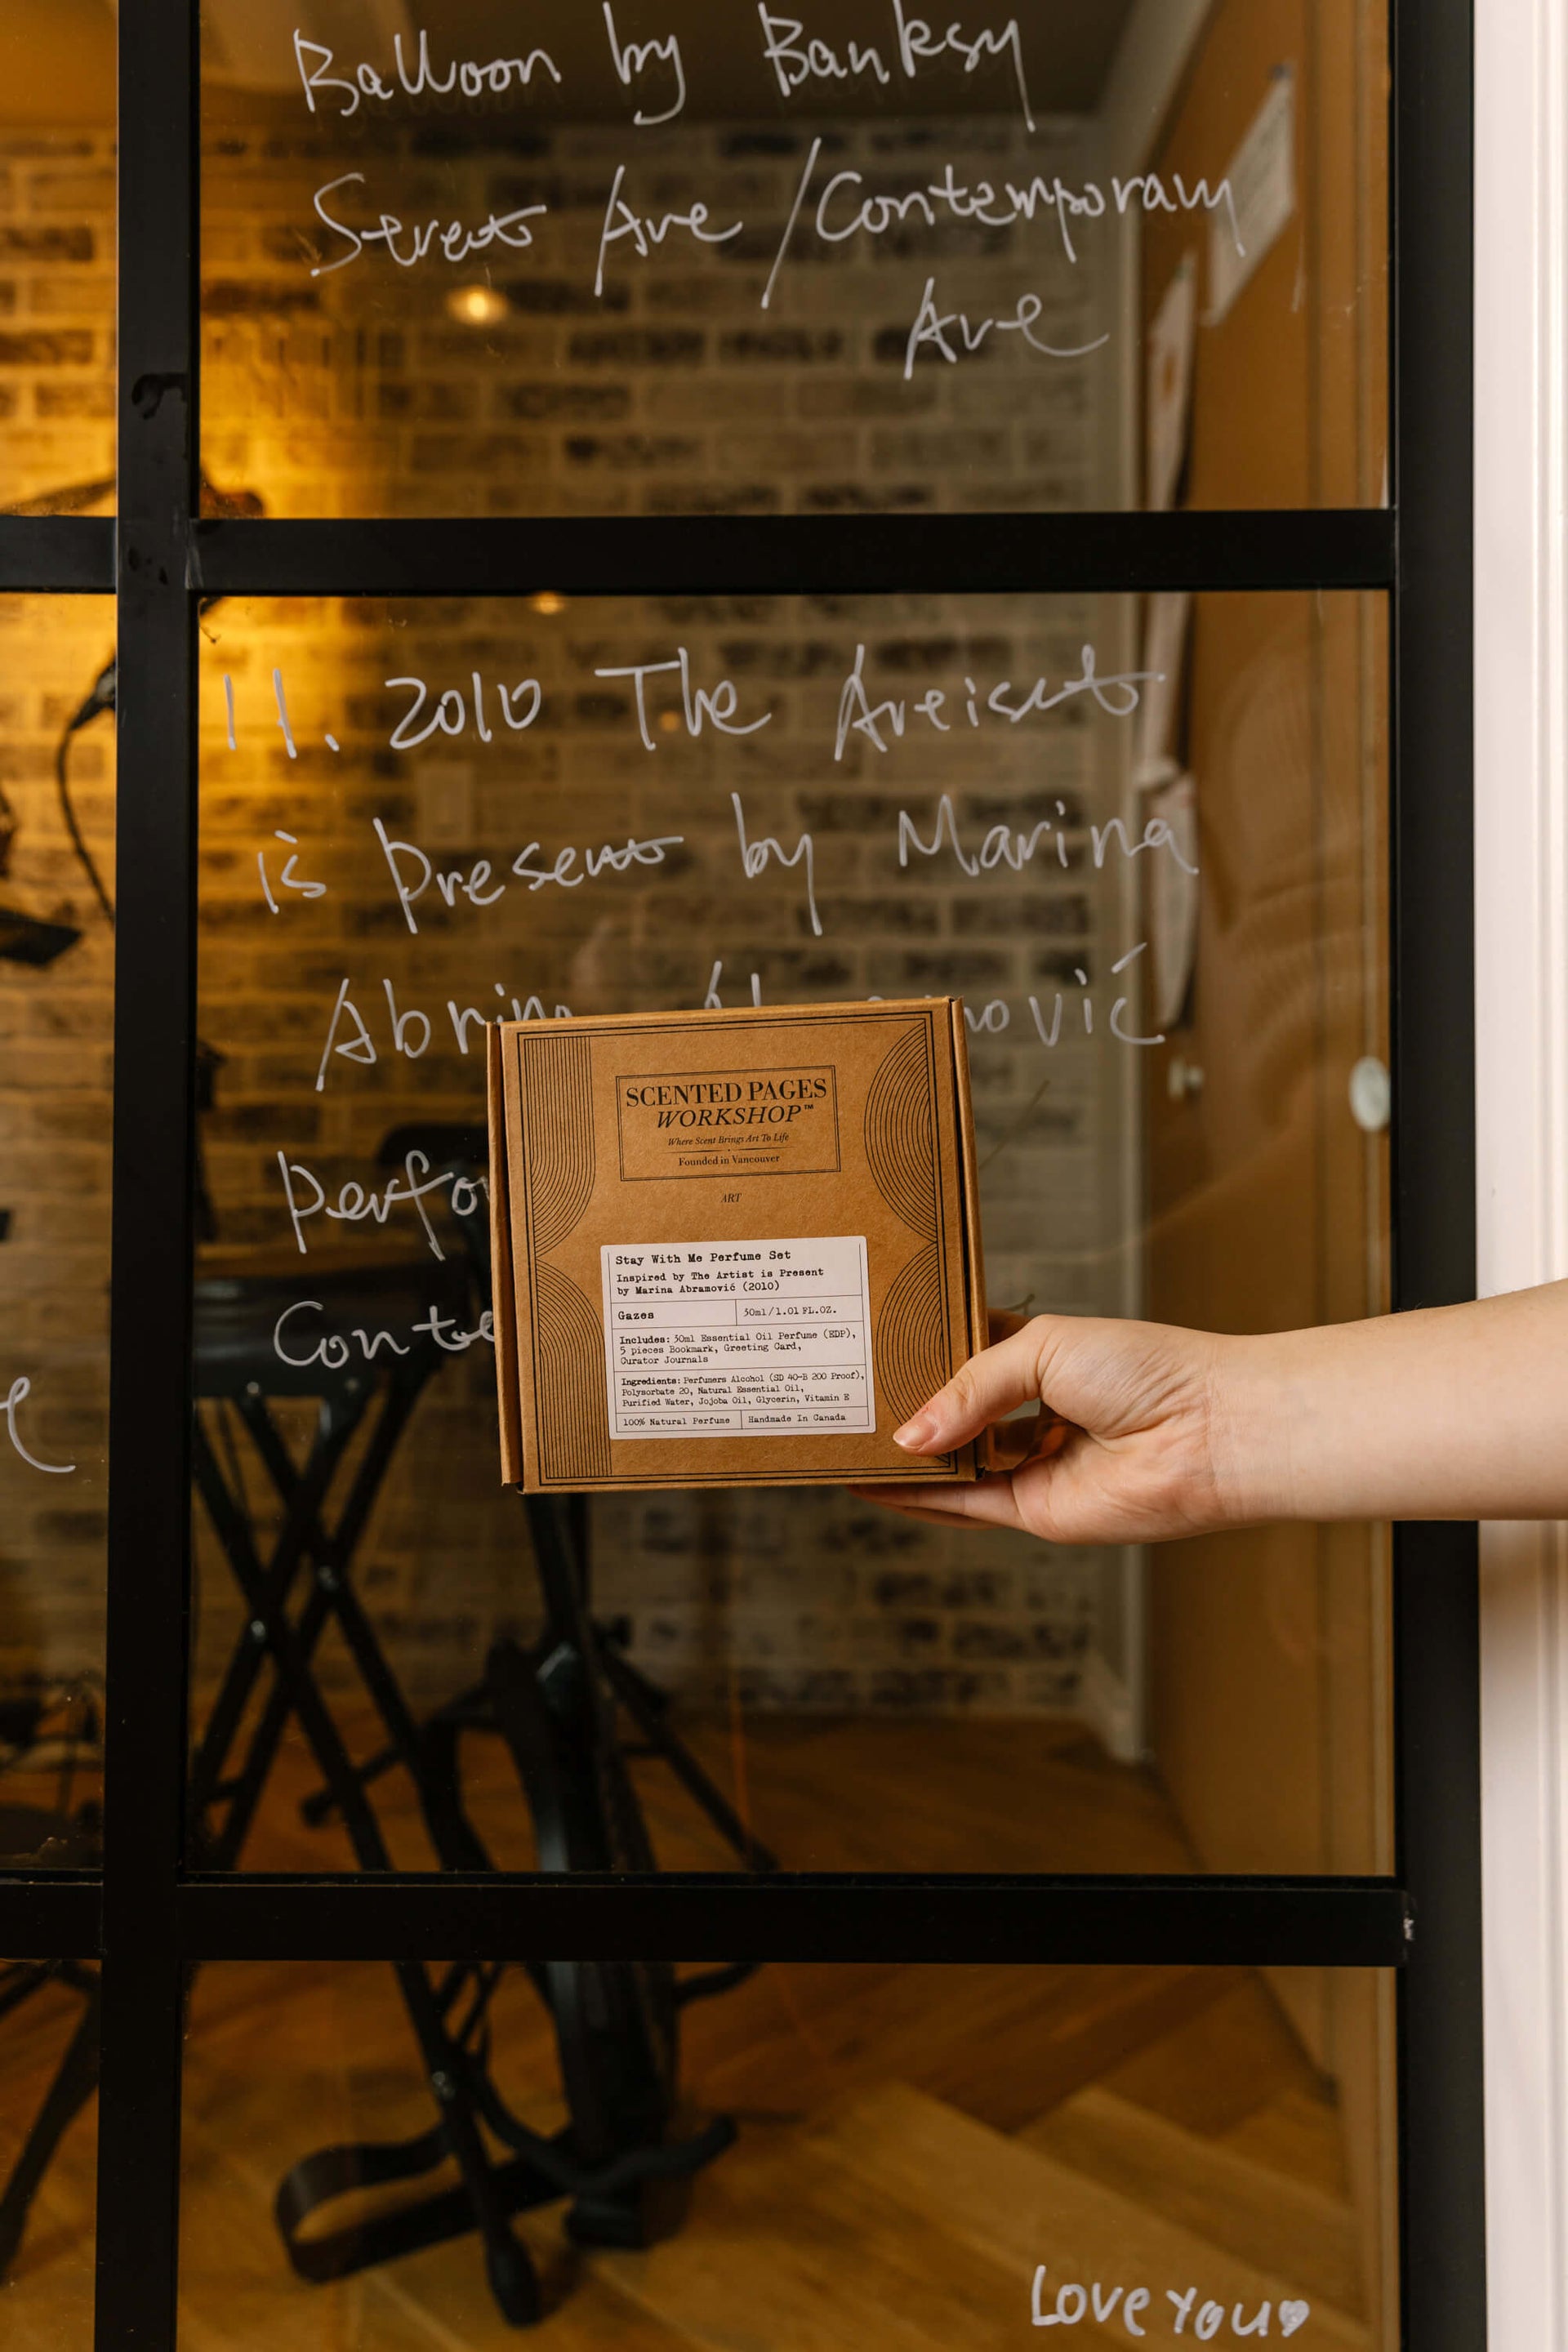 Balloon by Banksy
Street Art / Contemporary
Art
11. 2010 The Artist
is Present by Marina
Abramović
SCENTED PAGES
WORKSHOP™
Where Scent Brings Art To Life
Founded in Vancouver
ART
Stay With Me Perfume Set
Inspired by The Artist is Present
by Marina Abramović (2010)
Gazes
30ml/1.01 FL.OZ.
Includes: 30ml Essential Oil Perfume (EDP),
5 pieces Bookmark, Greeting Card,
Curator Journals
Ingredients: Perfumers Alcohol (SD 40-B 200 Proof),
Polysorbate 20, Natural Essential Oil,
Purified Water, Jojoba Oil, Glycerin, Vitamin E
100% Natural Perfume
Handmade In Canada
Love You♥